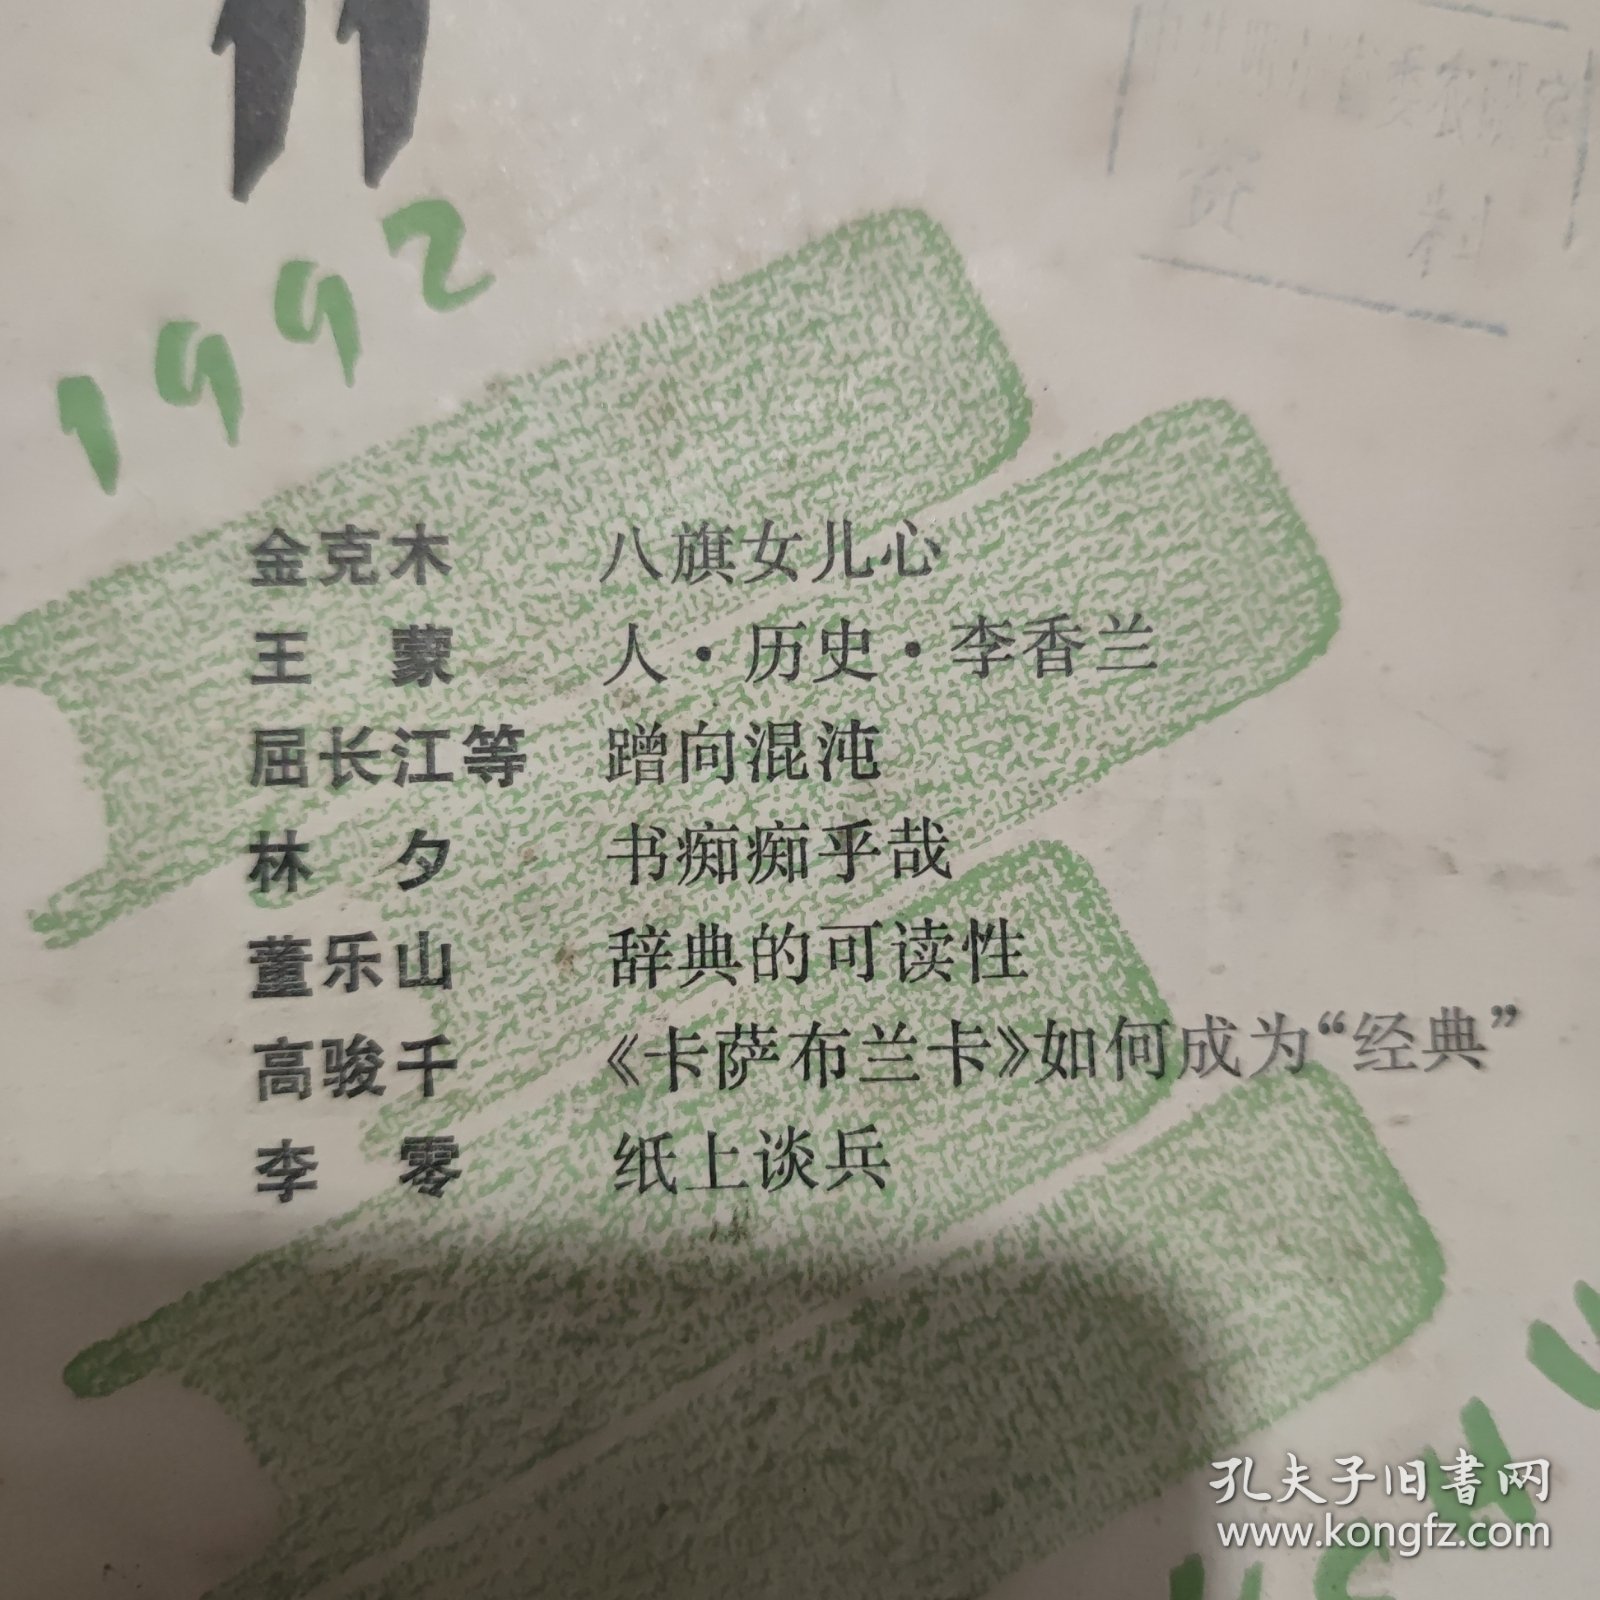 11
1992
金克木 八旗女儿心
王蒙 人·历史·李香兰
屈长江等 蹭向混沌
林夕 书痴痴乎哉
董乐山 辞典的可读性
高骏千 《卡萨布兰卡》如何成为“经典”
李零 纸上谈兵
孔夫子旧书网
www.kongfz.com